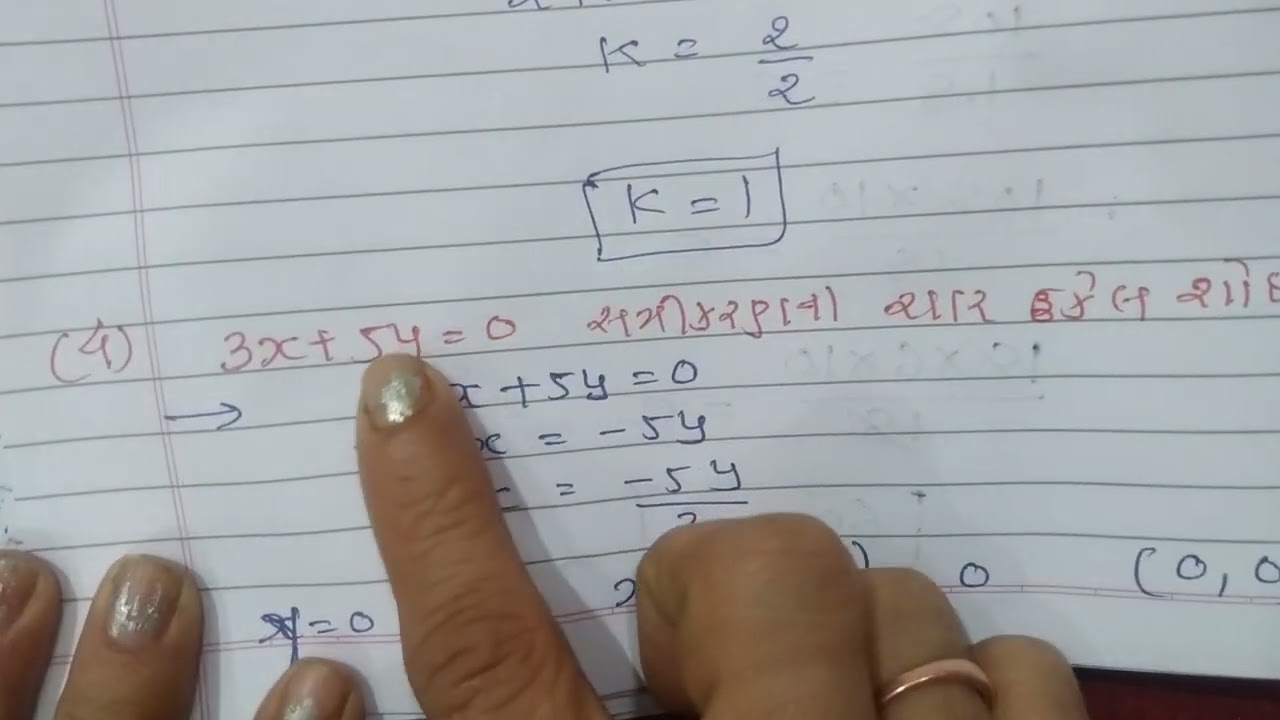 K = 2/2
K = 1
(4) 3x + 5y = 0 સમીકરણના ચાર ઉકેલ શોધ
→ x + 5y = 0
x = -5y
= -5y
y = 0 0 (0, 0